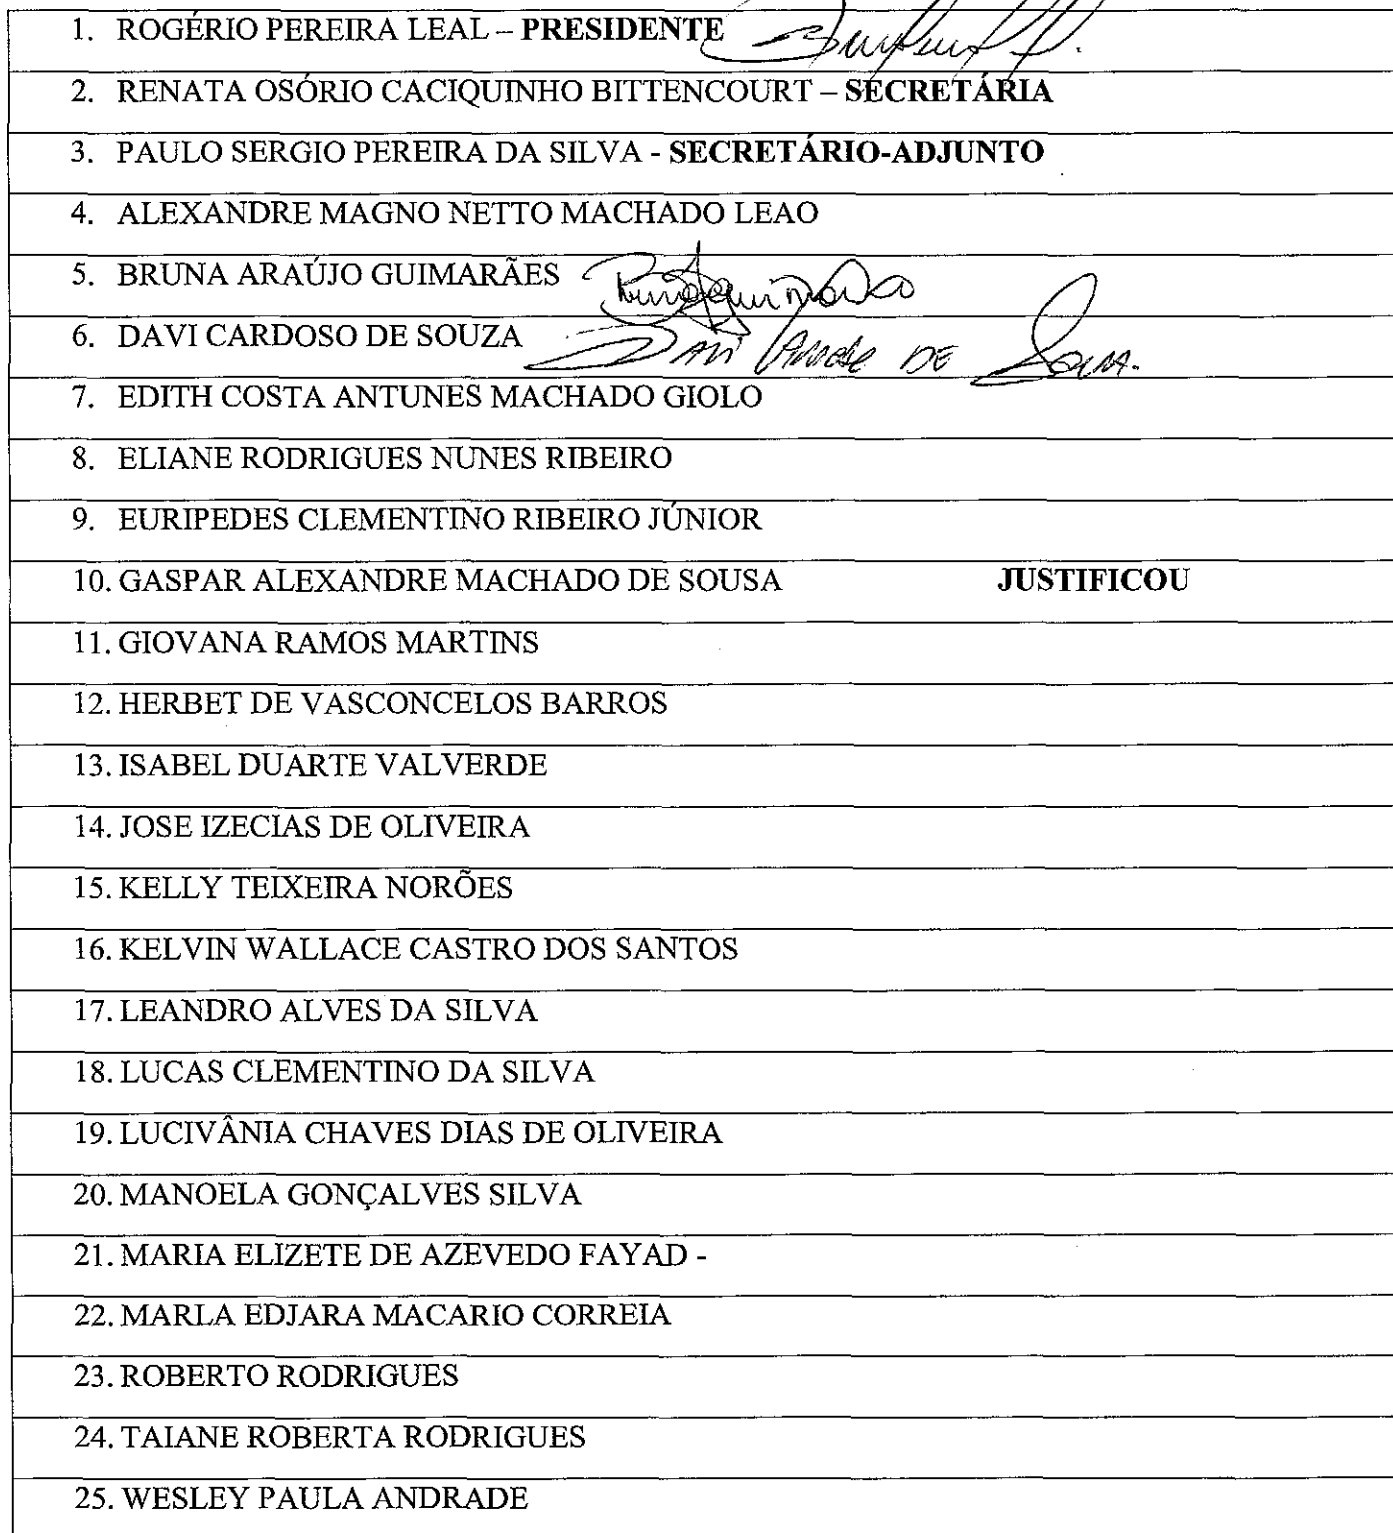 1. ROGÉRIO PEREIRA LEAL – PRESIDENTE
2. RENATA OSÓRIO CACIQUINHO BITTENCOURT – SECRETÁRIA
3. PAULO SERGIO PEREIRA DA SILVA - SECRETÁRIO-ADJUNTO
4. ALEXANDRE MAGNO NETTO MACHADO LEAO
5. BRUNA ARAÚJO GUIMARÃES
6. DAVI CARDOSO DE SOUZA DAVI DE
7. EDITH COSTA ANTUNES MACHADO GIOLO
8. ELIANE RODRIGUES NUNES RIBEIRO
9. EURIPEDES CLEMENTINO RIBEIRO JÚNIOR
10. GASPAR ALEXANDRE MACHADO DE SOUSA JUSTIFICOU
11. GIOVANA RAMOS MARTINS
12. HERBET DE VASCONCELOS BARROS
13. ISABEL DUARTE VALVERDE
14. JOSE IZECIAS DE OLIVEIRA
15. KELLY TEIXEIRA NORÕES
16. KELVIN WALLACE CASTRO DOS SANTOS
17. LEANDRO ALVES DA SILVA
18. LUCAS CLEMENTINO DA SILVA
19. LUCIVÂNIA CHAVES DIAS DE OLIVEIRA
20. MANOELA GONÇALVES SILVA
21. MARIA ELIZETE DE AZEVEDO FAYAD -
22. MARLA EDJARA MACARIO CORREIA
23. ROBERTO RODRIGUES
24. TAIANE ROBERTA RODRIGUES
25. WESLEY PAULA ANDRADE